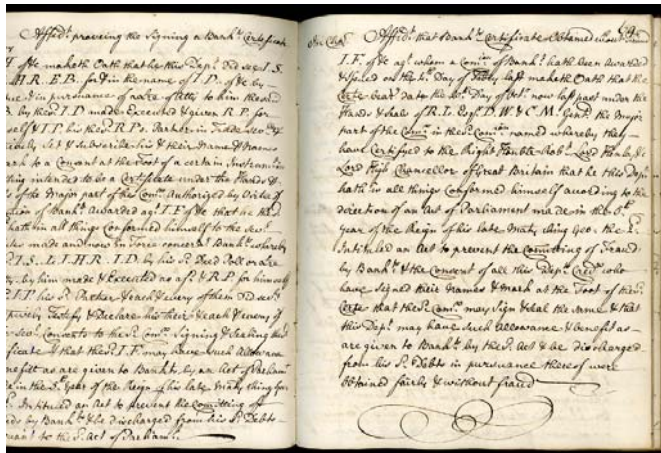 Affid.t proveing the Signing a Bank.ts Certificate
H of &c maketh Oath that he this Dep.t Did see I. S.
H. R. E. B. for & in the name of I. D. of &c by
ue & in pursuance of a Lre of Atty to him the said
B. by the s.d I. D made Executed & given R. P. for
self & I. P. his the s.d R. P.s Partner in Trade
Set & Subscribe his & their Name & Names
ark to a Consent at the Foot of a certain Instrum.t
ting intended to be a Certificate under the Hands &
s of the Major part of the Com.rs Authorized by Virtue of
ion of Bank.t Awarded ag.t I. F. of &c that he the s.d
hath in all things Conformed himself to the sev.l
utes made and now in Force concern.g Bank.ts whereby
I. S. L. I. H. R. I. D. by his s.d Deed Poll or Lre
ty by him made & Executed as afs.d & R. P. for himself
I. P. his s.d Partner & each & every of them Did
Testify & Declare his their & each & every of
sev.l Consents to the s.d Com.rs Signing & Sealing the s.d
ficate & that the s.d I. F. may have such Allowance
nefitt as are given to Bank.ts by an Act of Parliam.t
e in the 5.th Year of the Reign of his late Maty King Geo
Intituled an Act to prevent the Comitting of
ds by Bank.ts & be discharged from his s.d Debts
uant to the s.d Act of Parliam.t
In Cha
Affid.t that Bank.ts Certificate Obtained without Fraud
I. F. of &c ag.t whom a Com.n of Bank.t hath been Awarded
& Issued on the Day of last maketh Oath that the
Certe bear.g date the Day of Oct.r now last past under the
Hands & Seals of R. L. Esq.r D. W. & C. M. Gent. the Major
part of the Com.rs in the s.d Com.n named whereby they
have Certifyed to the Right Hon.ble Rob.t Lord Henley
Lord High Chancellor of Great Britain that he this Dep.t
hath in all things Conformed himself according to the
direction of an Act of Parliament made in the 5.th
year of the Reign of his late Maty King Geo. the
Intituled an Act to prevent the Comitting of Frauds
by Bank.ts & the Consent of all this Dep.ts Cred.rs who
have signed their Names & Mark at the Foot of the s.d
Certe that the s.d Com.rs may Sign & Seal the same & that
this Dep.t may have such Allowance & benefit as
are given to Bank.ts by the s.d Act & be discharged
from his s.d Debts in pursuance thereof were
Obtained fairly & without fraud